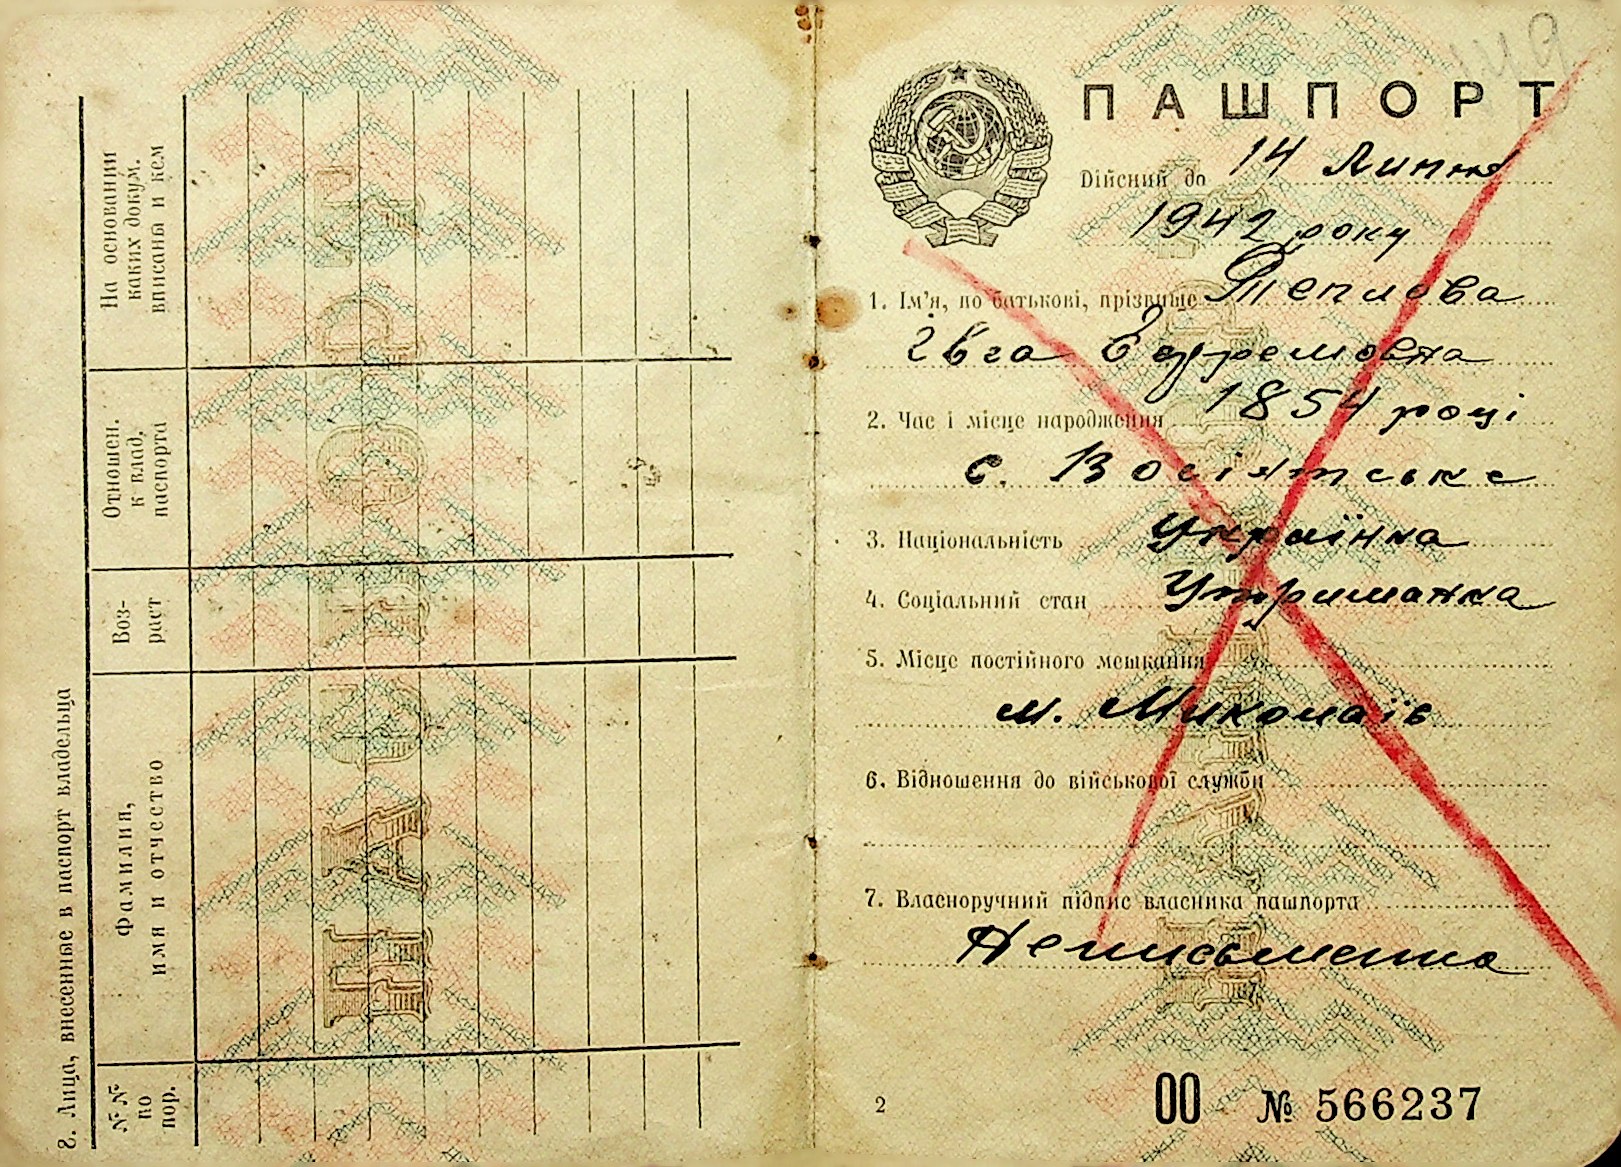 8. Лица, внесенные в паспорт владельца
№ №
по
пор.
Фамилия,
имя и отчество
Воз-
раст
Отношен.
к влад.
паспорта
На основании
каких докум.
вписаны и кем
ПАСПОРТ
149
ПАШПОРТ
Дійсний до 14 Липня
1942 року
1. Ім'я, по батькові, прізвище Теплова
Ївга Єфремовна
2. Час і місце народження 1854 році
с. Возсіятське
3. Національність Українка
4. Соціальний стан Утриманка
5. Місце постійного мешкання
м. Миколаїв
6. Відношення до військової служби
7. Власноручний підпис власника пашпорта
Неписьменна
2
00 № 566237